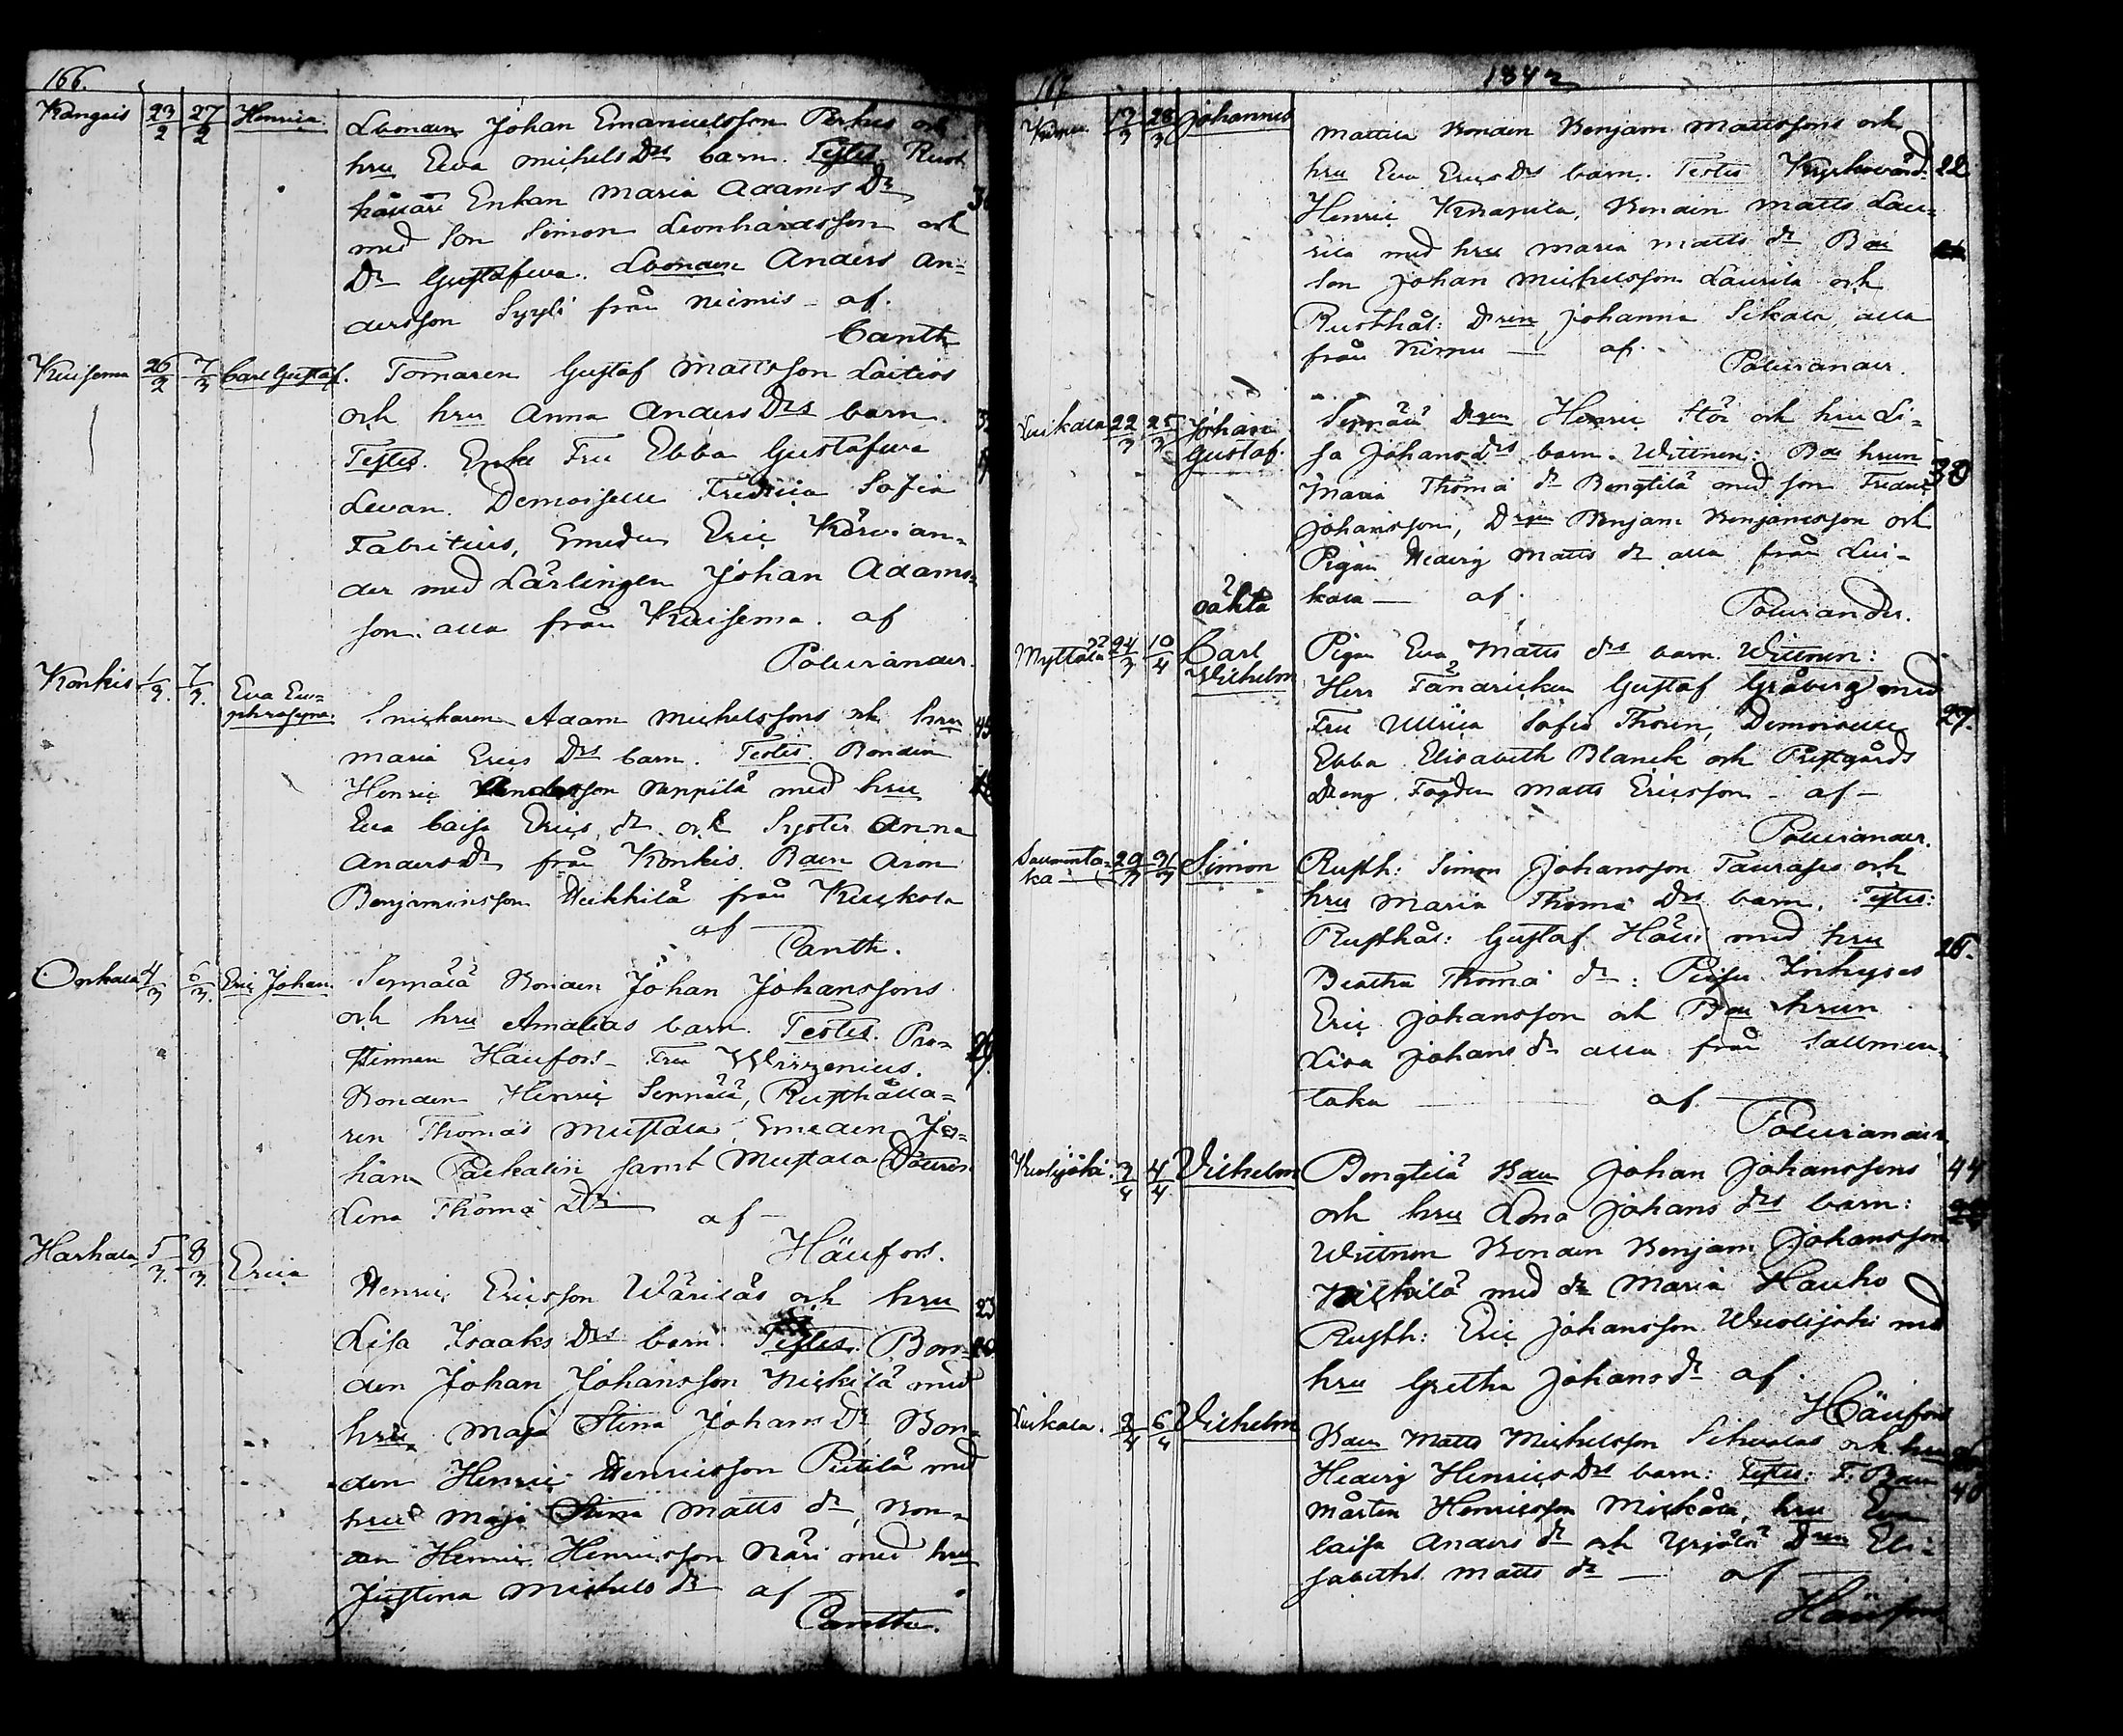 166.
Kangais 23/2 27/2 Henrica. Lbonden Johan Emanuelsson Perkus och
hru Ewa Michels Drs barn. Testes Rust
hållare Enkan Maria Adams Dr
med Son Simon Leonhardsson och
Dr Gustafwa. Lbonden Anders An=
dersson Syyli från Niemis - af.
Canth
Kuisema 26/2 7/3 Carl Gustaf. Tornaren Gustaf Mattsson Laitios
och hru Anna Anders Drs barn
Testes. Enke Fru Ebba Gustafwa
Levan. Demoiselle Fredrica Sofia
Fabritius, Smeden Eric Körvian=
der med Lärlingen Johan Adams=
son. alla från Kuisema. af
Polviander.
Konkis 1/3. 7/3. Eva Eu=
phrosyna. Snickaren Adam Michelssons och hru 45
Maria Erics Drs barn. Testes. Bonden
Henric Andersson Nappilä med hru
Eva Caisa Erics dr och Syster Anna
Anders Dr från Konkis. Baen Aron
Benjaminsson Heikkilä från Kuckola
af
Canth.
Onkala 4/3 6/3. Eric Johan. Seppälä Bonden Johan Johanssons
och hru Amalias barn. Testes. Pro= 29
stinnan Häufors. Fru Wirzenius.
Bonden Henric Seppälä, Rusthålla=
ren Thomas Mustala, Smeden Jo=
han Packalin samt Mustala Dottren
Lena Thoma Dr af
Häufors.
Harhala 5/3. 8/3. Erica Henric Ericsson Wäriläs och hru 23
Lisa Isaaks Drs barn. Testes. Bon=
den Johan Johansson Nickilä med
hru Maja Stina Johans Dr, Bon=
den Henric Henricsson Putilä med
hru Maja Stina Matts dr, Bon=
den Henric Henricsson Näri med hru
Justina Michels dr af
Canth.
167. 1842
12/3 28/3 Johannes Mattila Bonden Benjam Mattssons och
hru Eva Erics Drs barn. Testes Kyrkovärd 22
Henric Knaapila, Bonden Matts Lau=
rila med hru Maria Matts dr Bdu
son Johan Michelsson Laurila och
Rusthål: Dren Johanna Sikala, alla
från Kirmu — af.
Polviander.
Luikala 22/3 25/3 Johan
Gustaf. Seppälä Drgen Henric Stör och hru Li=
sa Johans drs barn. Wittnen: Bdu hrun 30
Maria Thoma dr Bengtilä med son Fredric
Johansson, Drgen Benjam Benjamsson och
Pigan Hedvig Matts dr alla från Lui=
kala — af.
Polviander.
oäkta
Myttälä 24/3 10/4 Carl
Wilhelm Pigan Eva Matts drs barn. Wittnen:
Herr Fändricken Gustaf Gråberg med
Fru Ullrica Sofia Thorén, Demoiselle 27.
Ebba Elisabeth Blanck och Prestgårds
Dreng Fogden Matts Ericsson - af -
Polviander.
29/3 31/3 Simon Rusth: Simon Johansson Taurasus och
hru Maria Thoma Drs barn. Testes:
Rusthål: Gustaf Häli med hru 26.
Beatha Thoma dr: Inhyses
Eric Johansson och Bdu hrun
Lisa Johans dr alla från Saumen=
taka — af.
Polviander
2/4 4/4 Vilhelm Bengtilä Bdu Johan Johanssons 44
och hru Lena Johans drs barn:
Wittnen Bonden Benjam Johansson
Nickilä med dr Maria Hauho
Rusth: Eric Johansson Wuolijoki med
hru Gretha Johans dr af.
Häufors
Luikala. 2/4 6/4 Vilhelm Bdu Matts Michelsson Sihvolas och hru
Hedvig Henrics Drs barn: Testes: F. Bdu 40
Mårten Henricsson Mickola, hru Eva
Caisa Anders dr och Yrjölä Dren Eli=
sabeths Matts dr — af
Häufors